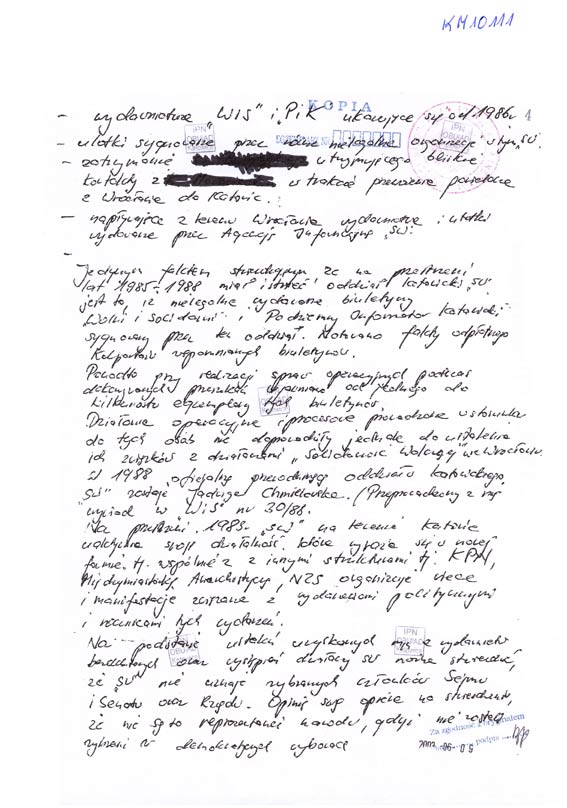 KM10111
KOPIA
4
- wydawnictwa "WiS" i "PiK" ukazujące się od 1986r
- ulotki sygnowane przez różne nielegalne organizacje w tym "SW".
- zatrzymanie utrzymującego bliskie
kontakty z w trakcie przewożenia powielacza
z Wrocławia do Katowic.
- napływające z terenu Wrocławia wydawnictwa i ulotki
wydawane przez Agencję Informacyjną "SW".
-
Jedynym faktem stwierdzającym że na przestrzeni
lat 1985-1988 miał istnieć oddział katowicki "SW"
jest to, iż nielegalne wydawane biuletyny
Wolni i Solidarni i Podziemny Informator Katowicki
sygnowany przez ten oddział. Notowano fakty
kolportażu wspomnianych biuletynów.
Ponadto przy realizacji spraw operacyjnych podczas
dokonywanych przeszukań ujawniano od jednego do
kilkunastu egzemplarzy tych biuletynów.
Działania operacyjne i procesowe prowadzone w stosunku
do tych osób nie doprowadziły jednak do ustalenia
ich związków z działaniami "Solidarność Walcząca" we Wrocławiu.
W 1988 oficjalną przewodniczącą oddziału katowickiego
"SW" zostaje Jadwiga Chmielowska. (Przeprowadzony z nią
wywiad w "WiS" nr 30/88.
Na przestrzeni 1989r. "SW" na terenie Katowic
uaktywnia swoją działalność, która wyraża się w nowej
formie tj. wspólnie z innymi strukturami tj. KPN,
Międzymiastówką Anarchistyczną, NZS organizuje wiece
i manifestacje związane z wydarzeniami politycznymi
i rocznicami tych wydarzeń.
Na podstawie ustaleń uzyskanych z wydawnictw
bezdebitowych oraz wystąpień działaczy SW można stwierdzić,
że "SW" nie uznaje wybranych członków Sejmu
i Senatu oraz Rządu. Opinię swą opiera na stwierdzeniu,
że nie są to reprezentanci narodu, gdyż nie zostali
wybrani w demokratycznych wyborach
IPN
IPN
Za zgodność z oryginałem
podpis